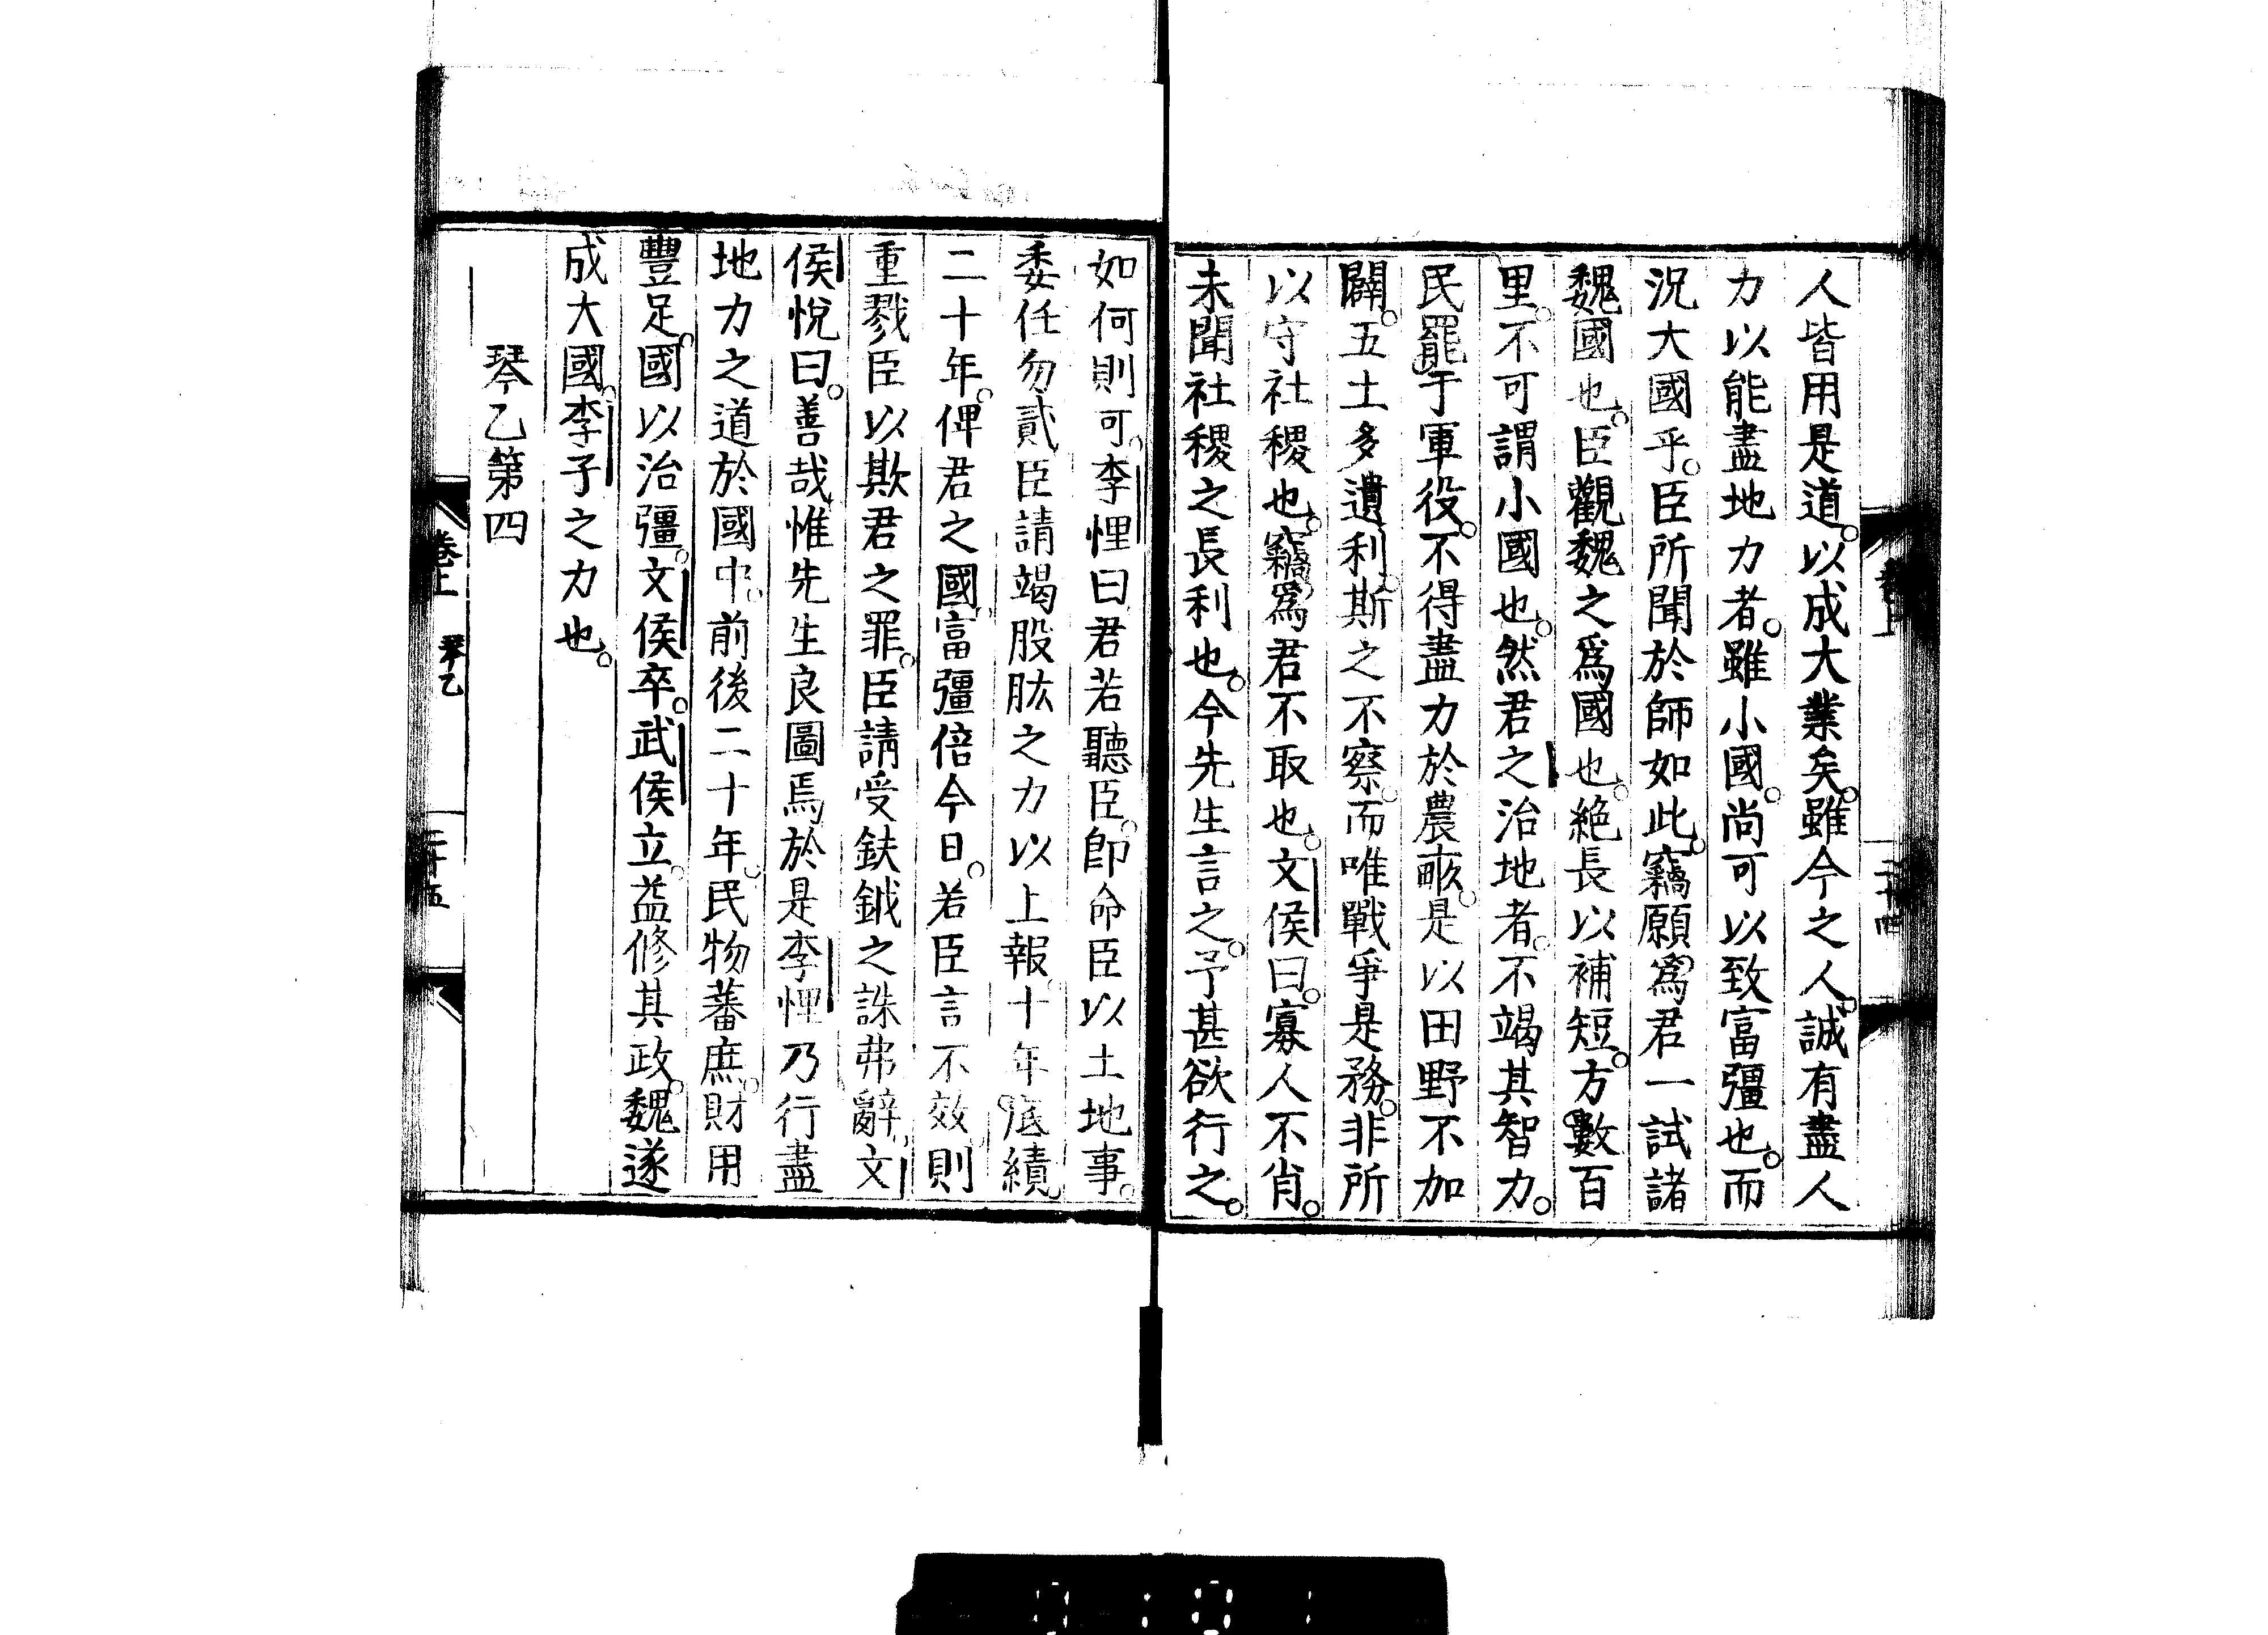 人皆用是道。以成大業矣。雖今之人。誠有盡人
力以能盡地力者。雖小國。尚可以致富彊也。而
況大國乎。臣所聞於師如此。竊願爲君一試諸
魏國也。臣觀魏之爲國也。絶長以補短。方數百
里。不可謂小國也。然君之治地者。不竭其智力。
民罷于軍役。不得盡力於農畝。是以田野不加
闢。五土多遺利。斯之不察。而唯戰爭是務。非所
以守社稷也。竊爲君不取也。文侯曰。寡人不肖。
未聞社稷之長利也。今先生言之。予甚欲行之。
如何則可。李悝曰君若聽臣。卽命臣以土地事。
委任勿貳臣請竭股肱之力以上報。十年。底績。
二十年。俾君之國。富彊倍今日。若臣言不效。則
重戮臣以欺君之罪。臣請受鈇鉞之誅弗辭。文
侯悅曰。善哉。惟先生良圖焉於是李悝乃行盡
地力之道於國中。前後二十年。民物蕃庶。財用
豐足。國以治彊。文侯卒。武侯立。益修其政。魏遂
成大國。李子之力也。
琴乙第四
卷上
琴乙
二十五
二十四